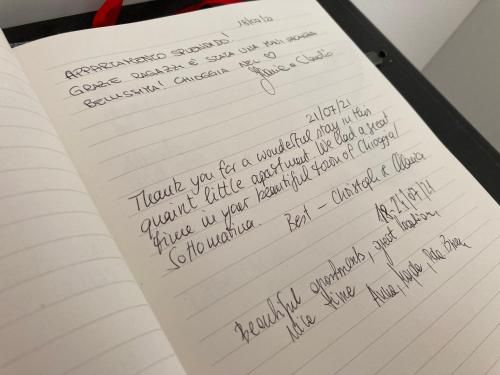 APPARTAMENTO SPLENDIDO!
GRAZIE RAGAZZI È STATA UNA
BELLISSIMA! CHIOGGIA NEL ♡
& Claudio
21/07/21
Thank you for a wonderful stay in this
quaint little apartment. We had a great
time in your beautiful town of Chioggia/
Sottomarina. Best - Christoph &
18.-21/07/21
Beautiful apartments, great location,
Nice time